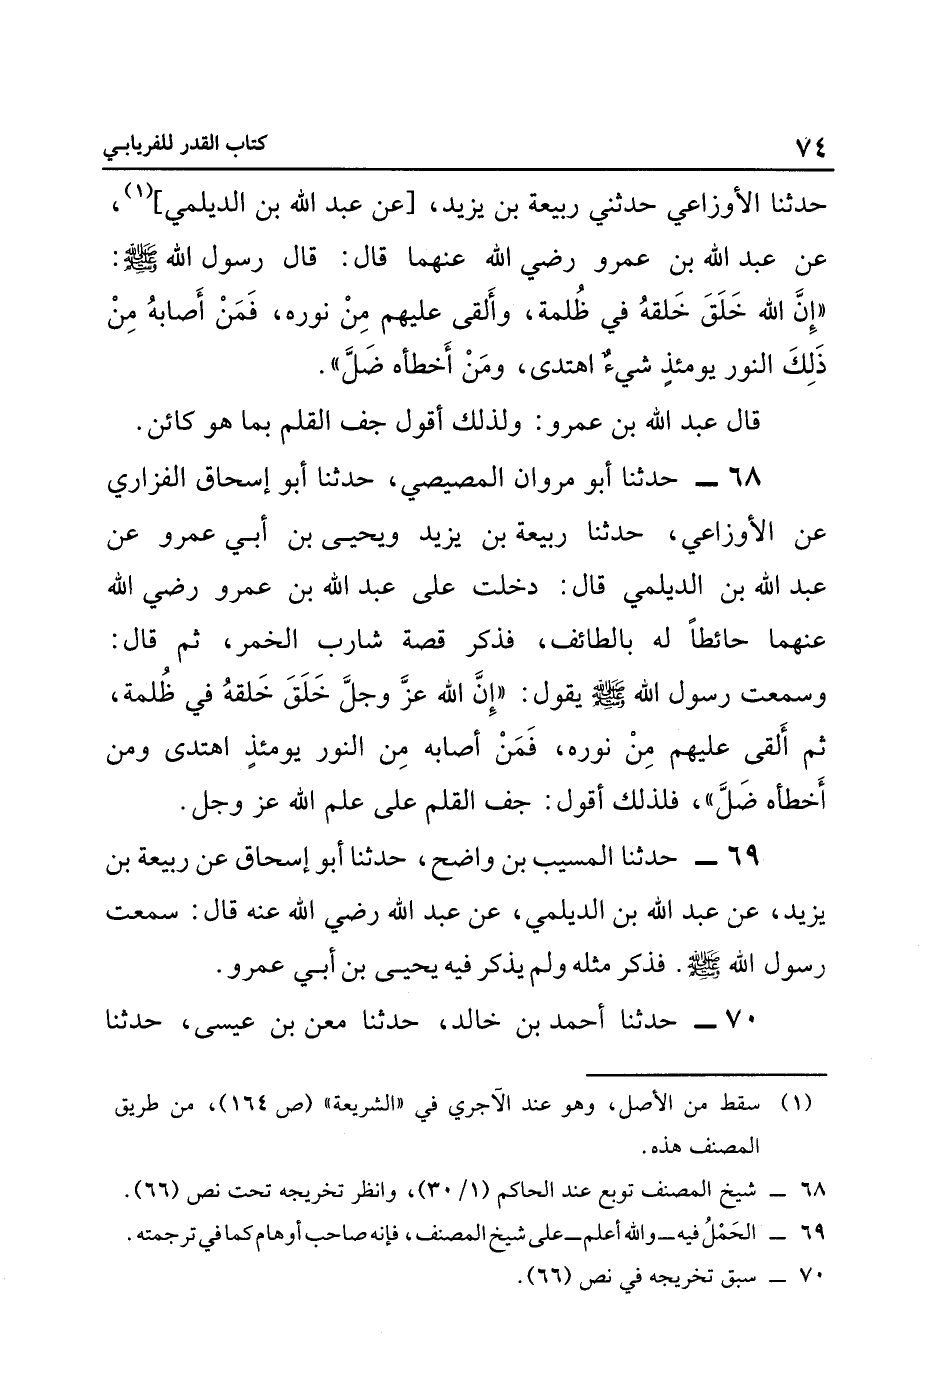 ٧٤ كتاب القدر للفريابي
حدثنا الأوزاعي حدثني ربيعة بن يزيد، [عن عبد الله بن الديلمي](١)،
عن عبد الله بن عمرو رضي الله عنهما قال: قال رسول الله ﷺ:
«إِنَّ الله خَلَقَ خَلقهُ في ظُلمة، وأَلقى عليهم مِنْ نوره، فَمَنْ أَصابهُ مِنْ
ذَلِكَ النور يومئذٍ شيءٌ اهتدى، ومَنْ أَخطأه ضَلَّ».
قال عبد الله بن عمرو: ولذلك أقول جف القلم بما هو كائن.
٦٨ ــ حدثنا أبو مروان المصيصي، حدثنا أبو إسحاق الفزاري
عن الأوزاعي، حدثنا ربيعة بن يزيد ويحيى بن أبي عمرو عن
عبد الله بن الديلمي قال: دخلت على عبد الله بن عمرو رضي الله
عنهما حائطاً له بالطائف، فذكر قصة شارب الخمر، ثم قال:
وسمعت رسول الله ﷺ يقول: «إِنَّ الله عزَّ وجلَّ خَلَقَ خَلقهُ في ظُلمة،
ثم أَلقى عليهم مِنْ نوره، فَمَنْ أصابه مِن النور يومئذٍ اهتدى ومن
أَخطأه ضَلَّ»، فلذلك أقول: جف القلم على علم الله عز وجل.
٦٩ ــ حدثنا المسيب بن واضح، حدثنا أبو إسحاق عن ربيعة بن
يزيد، عن عبد الله بن الديلمي، عن عبد الله رضي الله عنه قال: سمعت
رسول الله ﷺ. فذكر مثله ولم يذكر فيه يحيى بن أبي عمرو.
٧٠ ــ حدثنا أحمد بن خالد، حدثنا معن بن عيسى، حدثنا
(١) سقط من الأصل، وهو عند الآجري في «الشريعة» (ص ١٦٤)، من طريق
المصنف هذه.
٦٨ ــ شيخ المصنف توبع عند الحاكم (٣٠/١)، وانظر تخريجه تحت نص (٦٦).
٦٩ ــ الحَمْلُ فيه ــ والله أعلم ــ على شيخ المصنف، فإنه صاحب أوهام كما في ترجمته.
٧٠ ــ سبق تخريجه في نص (٦٦).